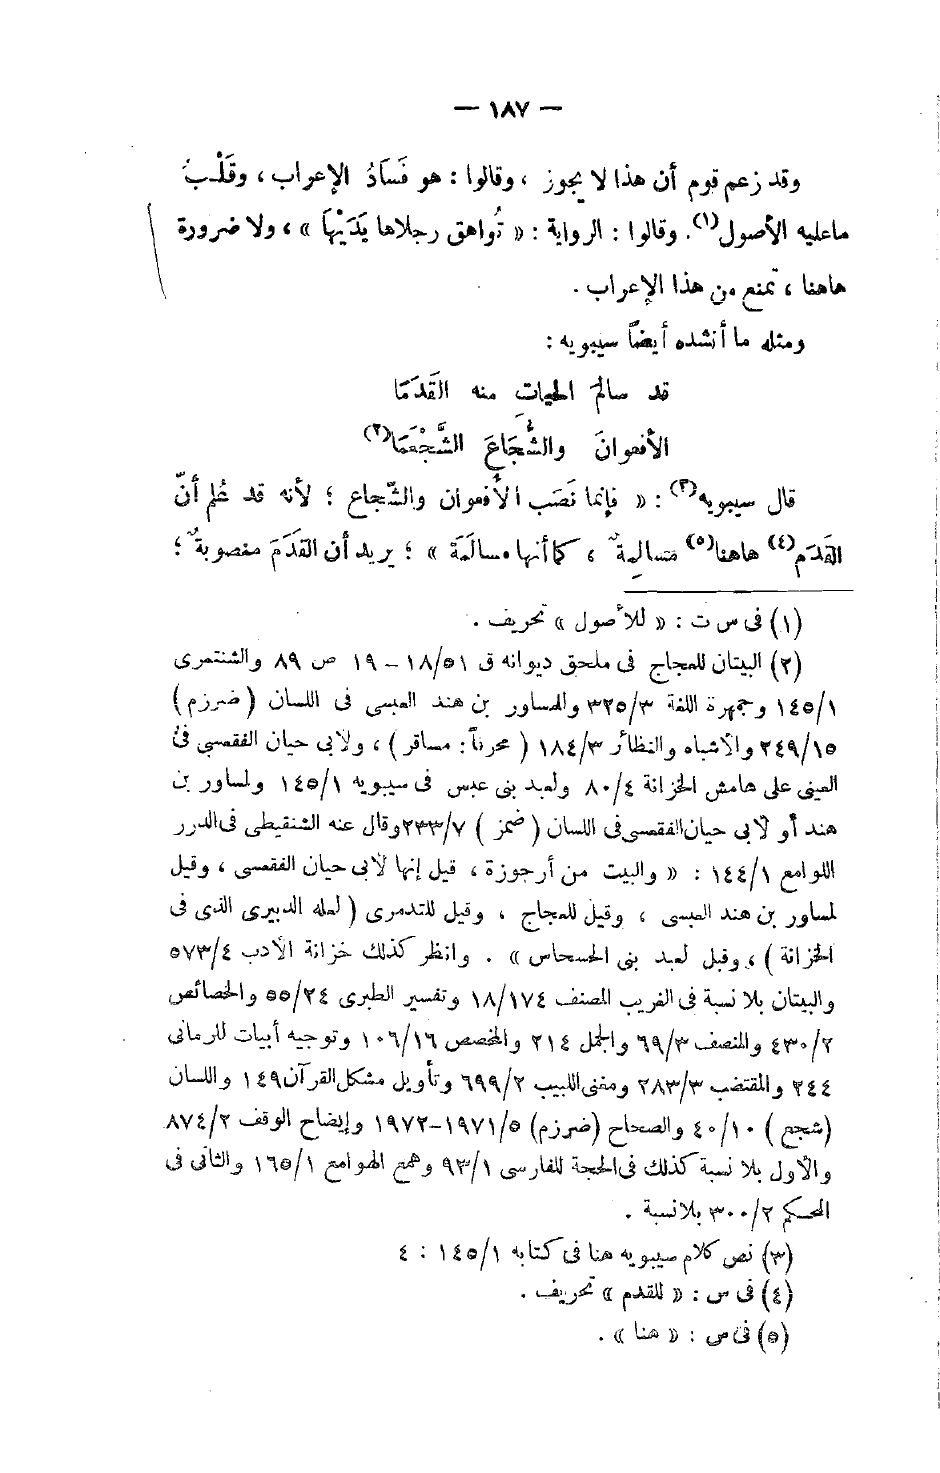 — ١٨٧ —
وقد زعم قوم أن هذا لا يجوز ، وقالوا : هو فَسَادُ الإعراب ، وقَلْبُ
ماعليه الأصول(١). وقالوا : الرواية : « تُواهق رجلاها يَدَيْهَا » ، ولا ضرورة
هاهنا ، تمنع من هذا الإعراب .
ومثله ما أنشده أيضاً سيبويه :
قد سالمَ الحيات منه القَدَمَا
الأفعوانَ والشُّجَاعَ الشَّجْعَمَا(٢)
قال سيبويه(٣) : « فإنما نَصَب الأُفعوان والشّجاع ؛ لأنه قد عُلم أنّ
القَدَم(٤) هاهنا(٥) مسالِمةٌ ، كما أنها مسالَمَة » ؛ يريد أن القَدَمَ منصوبةٌ ؛
(١) فى س ت : « للأصول » تحريف .
(٢) البيتان للعجاج فى ملحق ديوانه ق ١٨/٥١ – ١٩ ص ٨٩ والشنتمرى
١٤٥/١ وجمهرة اللغة ٣٢٥/٣ والمساور بن هند العبسى فى اللسان ( ضرزم )
٢٤٩/١٥ والأشباه والنظائر ١٨٤/٣ ( محرفاً : مسافر ) ، ولأبى حيان الفقعسى فى
العينى على هامش الخزانة ٨٠/٤ ولعبد بنى عبس فى سيبويه ١٤٥/١ ولمساور بن
هند أو لأبى حيان الفقعسى فى اللسان ( ضمز ) ٢٣٣/٧ وقال عنه الشنقيطى فى الدرر
اللوامع ١٤٤/١ : « والبيت من أرجوزة ، قيل إنها لأبى حيان الفقعسى ، وقيل
لمساور بن هند العبسى ، وقيل للعجاج ، وقيل للتدمرى ( لعله الدبيرى الذى فى
الخزانة ) ، وقيل لعبد بنى الحسحاس » . وانظر كذلك خزانة الأدب ٥٧٣/٤
والبيتان بلا نسبة فى الغريب المصنف ١٨/١٧٤ وتفسير الطبرى ٥٥/٢٤ والخصائص
٤٣٠/٢ والمنصف ٦٩/٣ والجمل ٢١٤ والمخصص ١٠٦/١٦ وتوجيه أبيات للرمانى
٢٤٤ والمقتضب ٢٨٣/٣ ومغنى اللبيب ٦٩٩/٢ وتأويل مشكل القرآن ١٤٩ واللسان
( شجع ) ٤٠/١٠ والصحاح (ضرزم) ١٩٧١/٥–١٩٧٢ وإيضاح الوقف ٨٧٤/٢
والأول بلا نسبة كذلك فى الحجة للفارسى ٩٣/١ وهمع الهوامع ١٦٥/١ والثانى فى
المحكم ٣٠٠/٢ بلا نسبة .
(٣) نص كلام سيبويه هنا فى كتابه ١٤٥/١ : ٤
(٤) فى س : « للقدم » تحريف .
(٥) فى س : « هنا » .